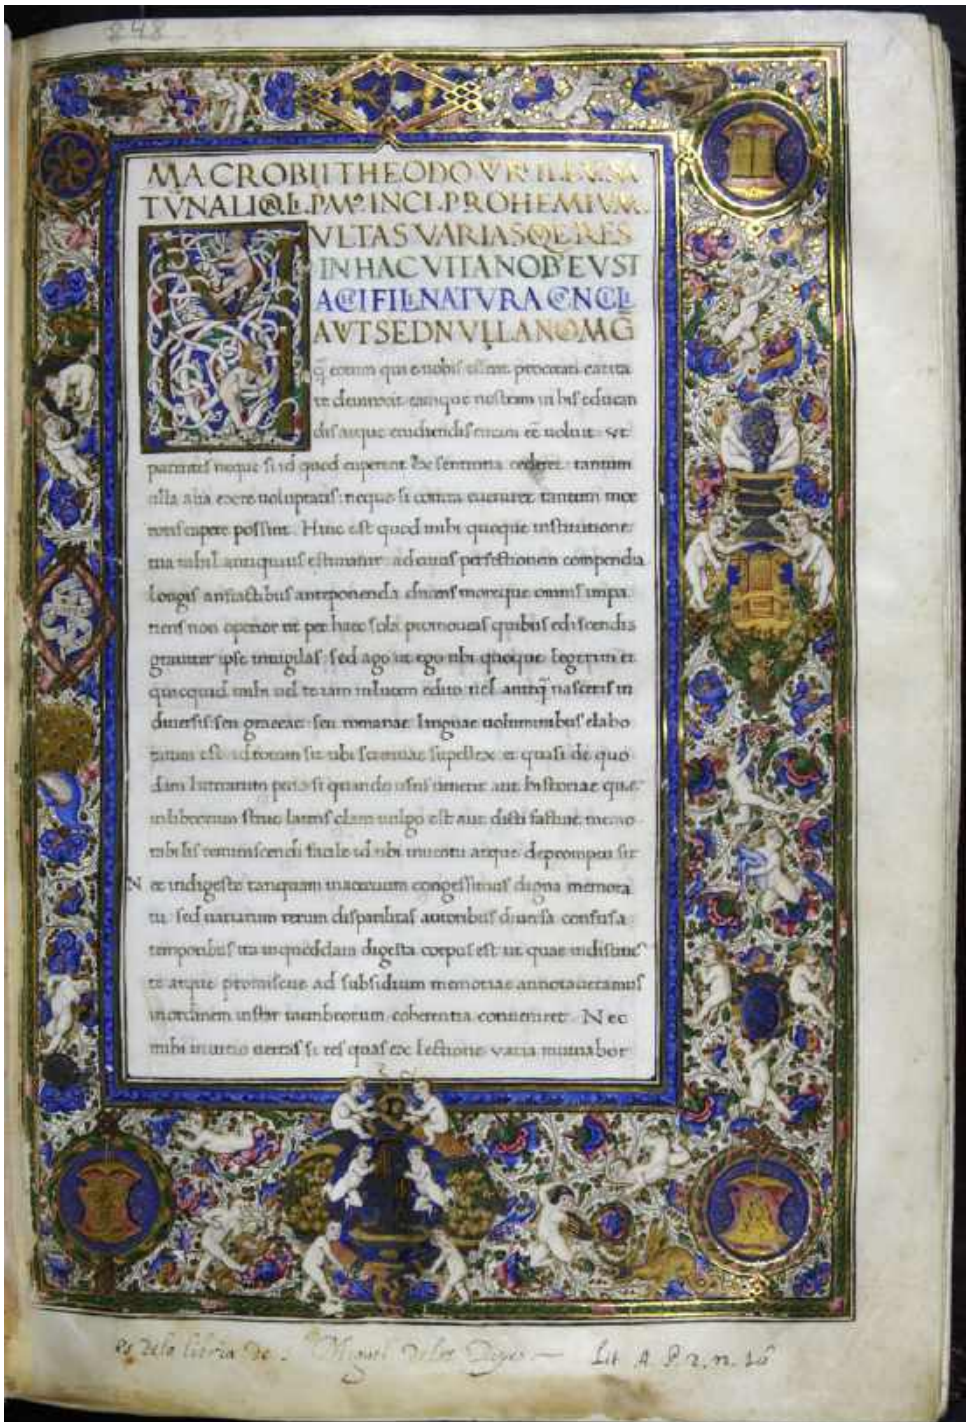 848
MACROBII THEODO V̄R ILL' V̄ SA
TVRNALIOR̄ LI. PM̊. INCI. PROHEMIVM.
VLTAS VARIASQ̨E RES
IN HAC VITA NOB̄ EVST
ACHI FILI NATVRA CONCILI
AVIT SED NVLLA NOS MG̅
q̄ eorum qui e nobis essent procreati carita
te deuinxit eamque nostram in his educan
dis atque erudiendis curam eē uoluit ut
parentes neque si id quod cuperent ex sententia cederet tantum
ulla alia ex re uoluptatis: neque si contra eueniret tantum moe
roris capere possint. Hinc est quod mihi quoque institutione
tua nihil antiquius estimatur ad cuius perfectionem compendia
longis anfractibus anteponenda ducens moreque omnis impa
tiens non operior ut per haec sola promoueas quibus ediscendis
grauiter ipse inuigilas: sed ago ut ego tibi quoque legerim et
quicquid mihi uel te iam in lucem edito uel anteq̄ nasceris in
diuersis seu graecae seu romanae linguae uoluminibus elabo
ratum est id totum sit tibi scientiae supellex et quasi de quo
dam litterarum peno si quando usus uenerit aut historiae que
in librorum strue latens clam uulgo est aut dicti factiue memo
rabilis reminiscendi facile id tibi inuentu atque depromptu sit
N ec indigeste tanquam in aceruum congessimus digna memora
tu sed uariarum rerum disparilitas autoribus diuersa confusa
temporibus ita in quoddam digesta corpus est ut quae indistinc
te atque promiscue ad subsidium memoriae annotaueramus
in ordinem instar membrorum coherentia conuenirent Nec
mihi in uitio uertas si res quas ex lectione varia mutuabor
es de la libria de Dⁿ Miguel de los Reyes — Lit A P. 2. n. 10